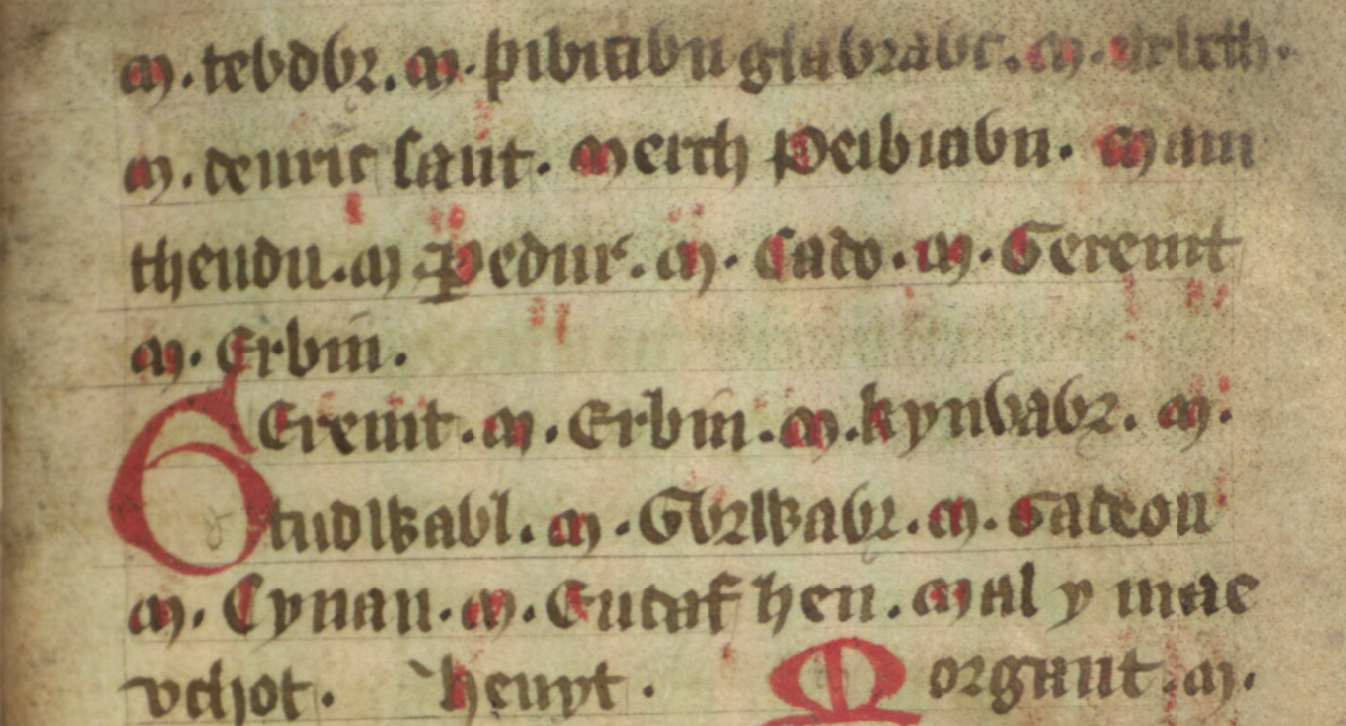 m. tebdbr. m. pibiabn glabrabc. m. arlth.
m. denric sant. Merch Peibiabn. Mam
thendu. m Pedur. m. Cado. m. Gereint
m. Erbin.
GEreint. m. Erbin. m. kynbabr. m.
tudwabl. m. Gbrwabr. m. Gadeon
m. Cynan. m. Eudaf hen. mal y mae
vchot. henyt. Morgant. m.